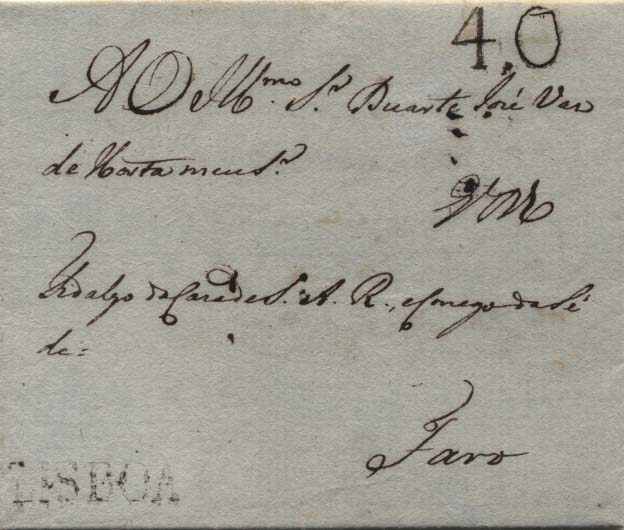 40
AO Illmo. Sr. Duarte José Vaz
de Horta meu Sr.
Fidalgo da Casa de S. A. R., e Conego da Sé
de=
Faro
LISBOA